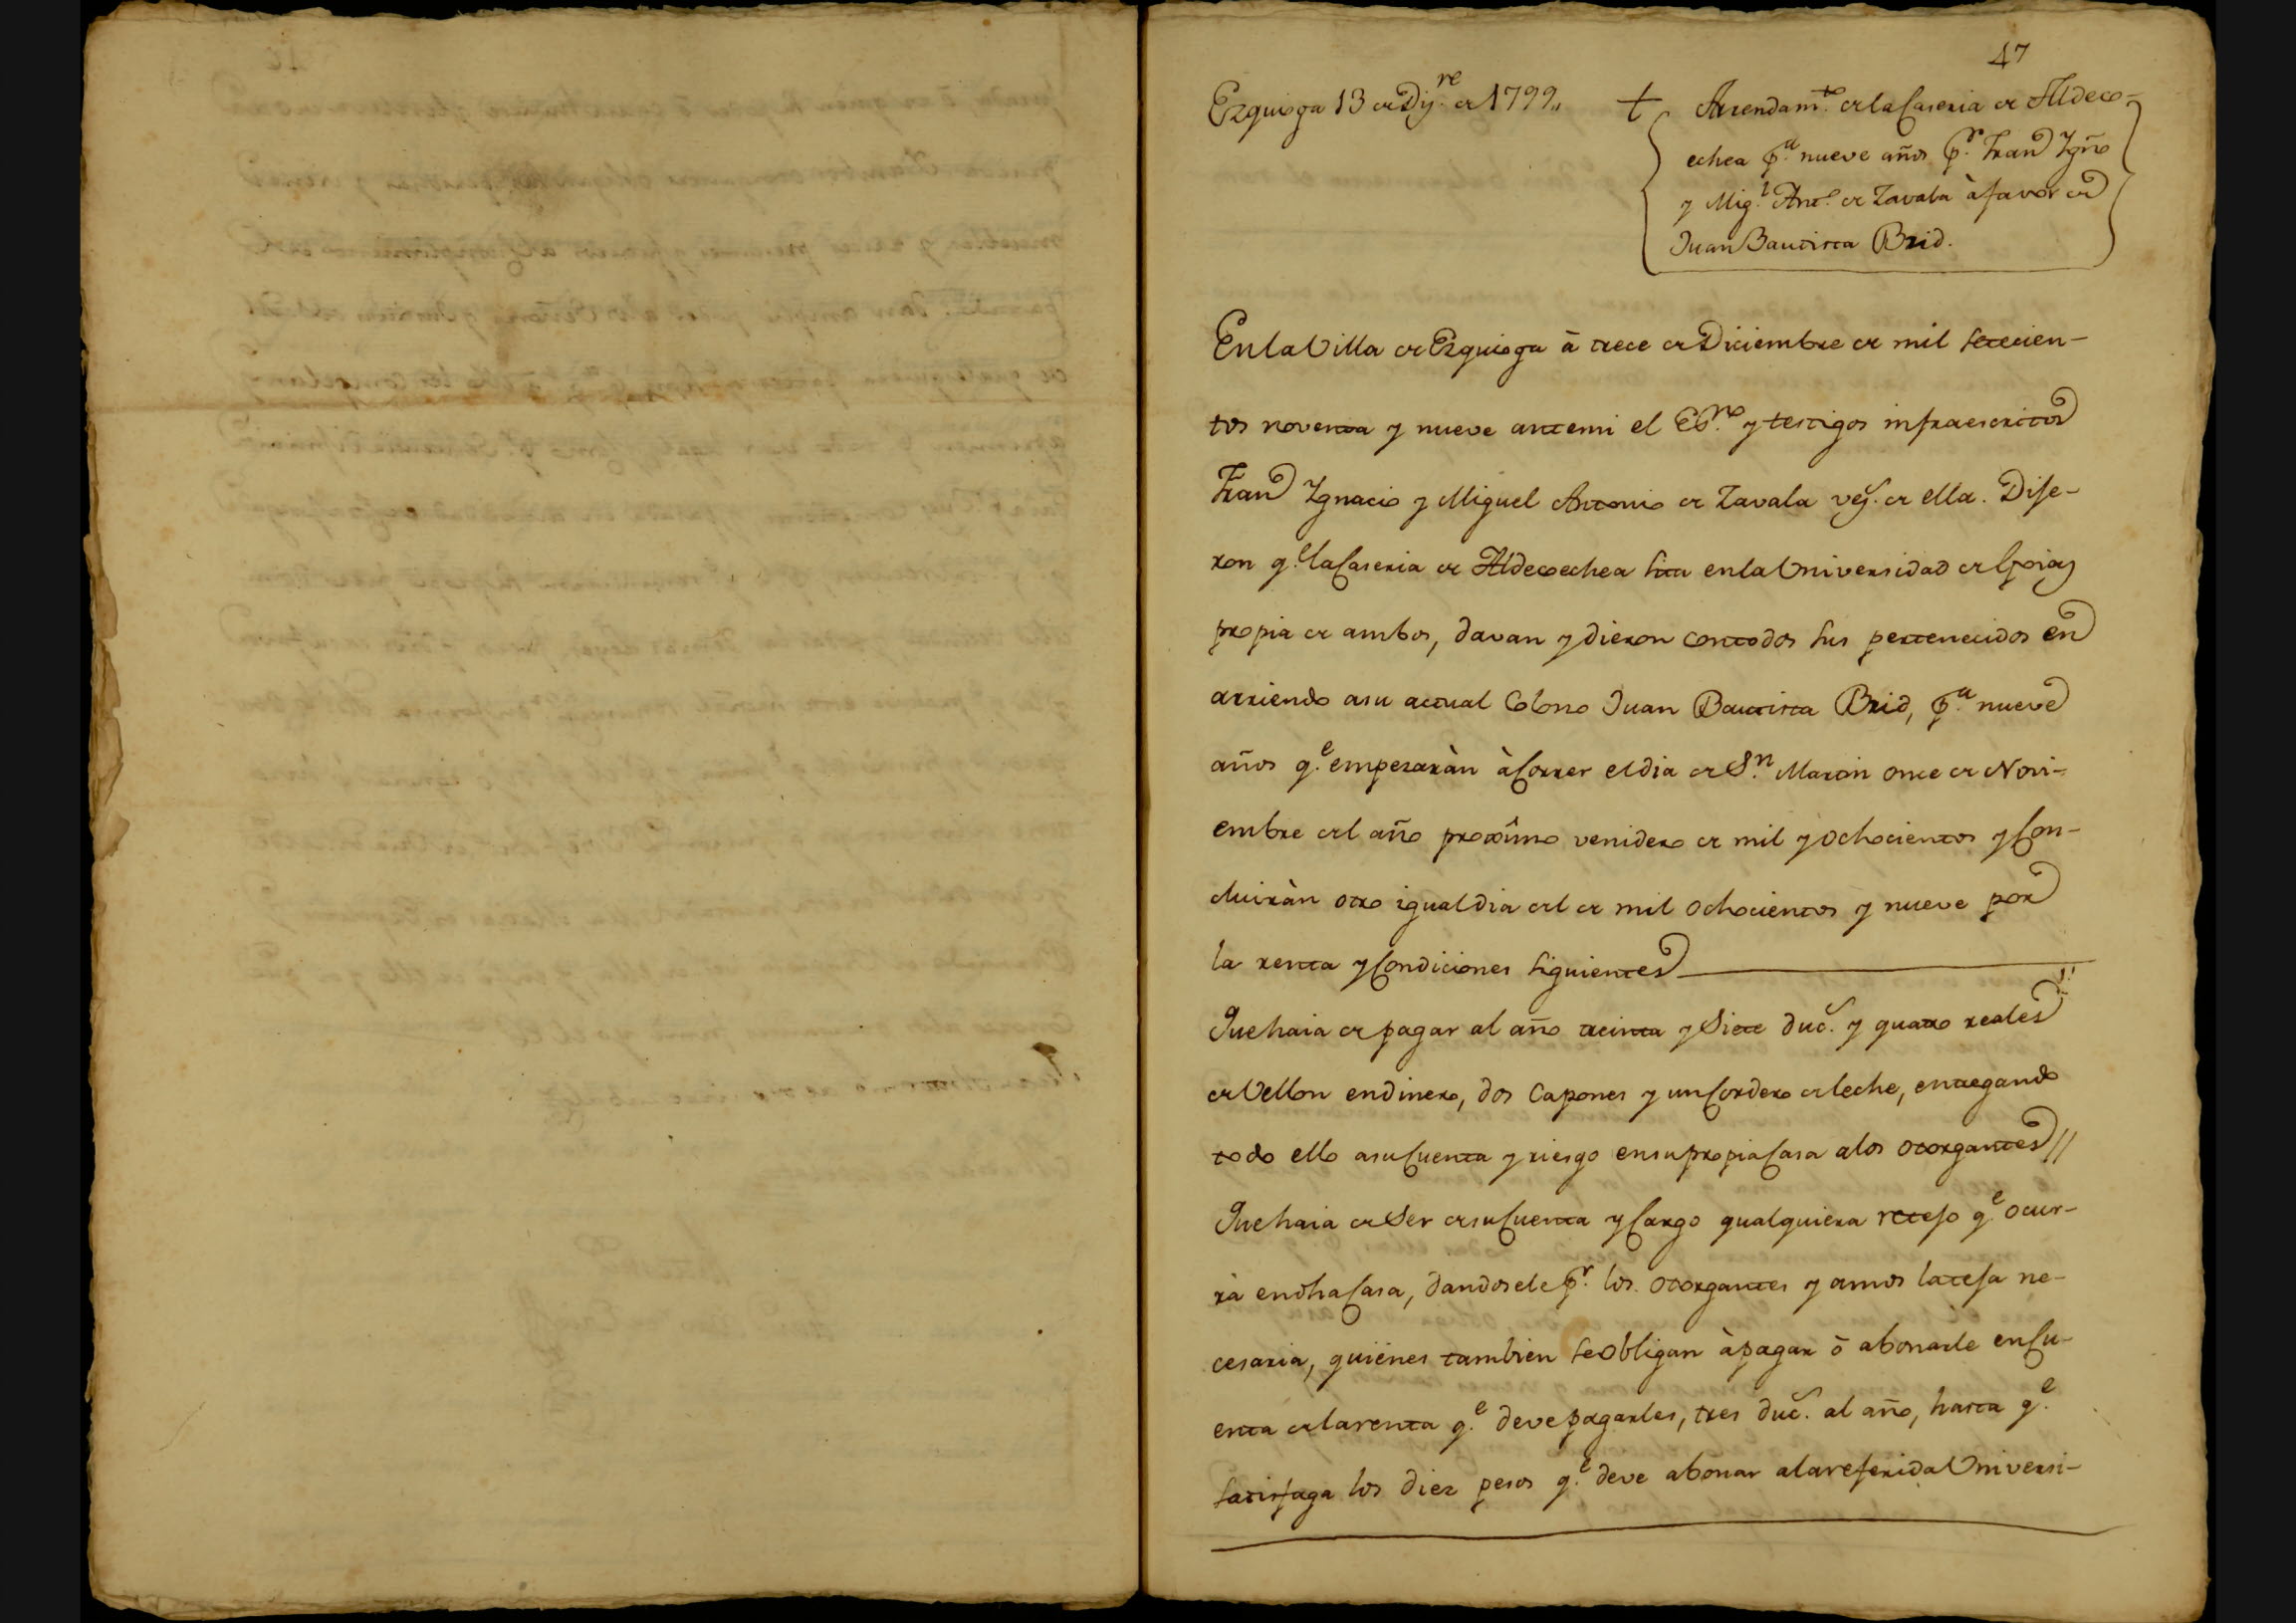 47
Ezquioga 13 de Diz.re de 1799„
† Arrendam.to de la Caseria de Aldeco-
echea p.a nueve años p.r Fran.co Ygn.o
y Mig.l Ant.o de Zavala à favor de
Juan Bautista Brid.
En la Villa de Ezquioga à trece de Diciembre de mil setecien-
tos noventa y nueve ante mi el Es.no y testigos infraescritos
Fran.co Ygnacio y Miguel Antonio de Zavala vez.s de ella. Dije-
ron q.e la Caseria de Aldecoechea sita en la Universidad de
propia de ambos, davan y dieron con todos sus pertenecidos en
arriendo a su actual Colono Juan Bautista Brid, p.a nueve
años q.e empezaràn à Correr el dia de S.n Martin once de Novi-
embre del año proximo venidero de mil y ochocientos y Con-
cluiràn otro igual dia del de mil ochocientos y nueve por
la renta y Condiciones siguientes
Que haia de pagar al año treinta y Siete duc.s y quatro reales
de Vellon en dinero, dos Capones y un Cordero de leche, entregando
todo ello a su Cuenta y riesgo en su propia Casa a los otorgantes //
Que haia de Ser de su Cuenta y Cargo qualquiera retejo q.e ocur-
ra en dha Casa, dandosele p.r los otorgantes y amos la teja ne-
cesaria, quienes tambien se obligan à pagar ò abonarle en Cu-
enta de la renta q.e deve pagarles, tres duc.s al año, hasta q.e
satisfaga los diez pesos q.e deve abonar a la referida Universi-